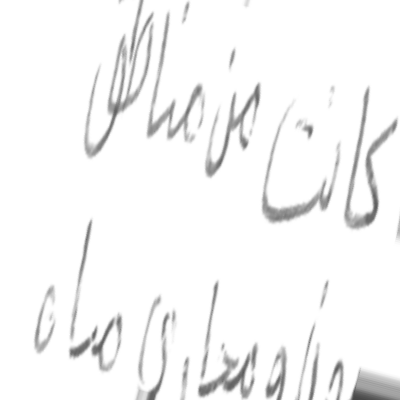 كانت من مناطق
ومجاري مياه